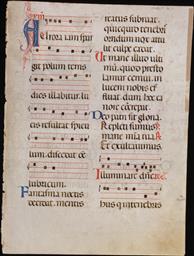 Aurora iam spar
git polum terris
dies illabitur lu
cis resultat spicu
lum discedat oe
lubricum.
Fantasma noctis
decidat. mentis
reatus subruat.
quicquid tenebris
horridum nox attu
lit culpe cadat.
Ut mane illud ulti
mum. quod presto
lamur cernui. in
lucem nobis ef
fluat dum hoc ca
nore
Deo patri sit gloria.
Repleti sumus
mane mia tua.
Et exultauimus.
Illuminare
bus qui in tenebris